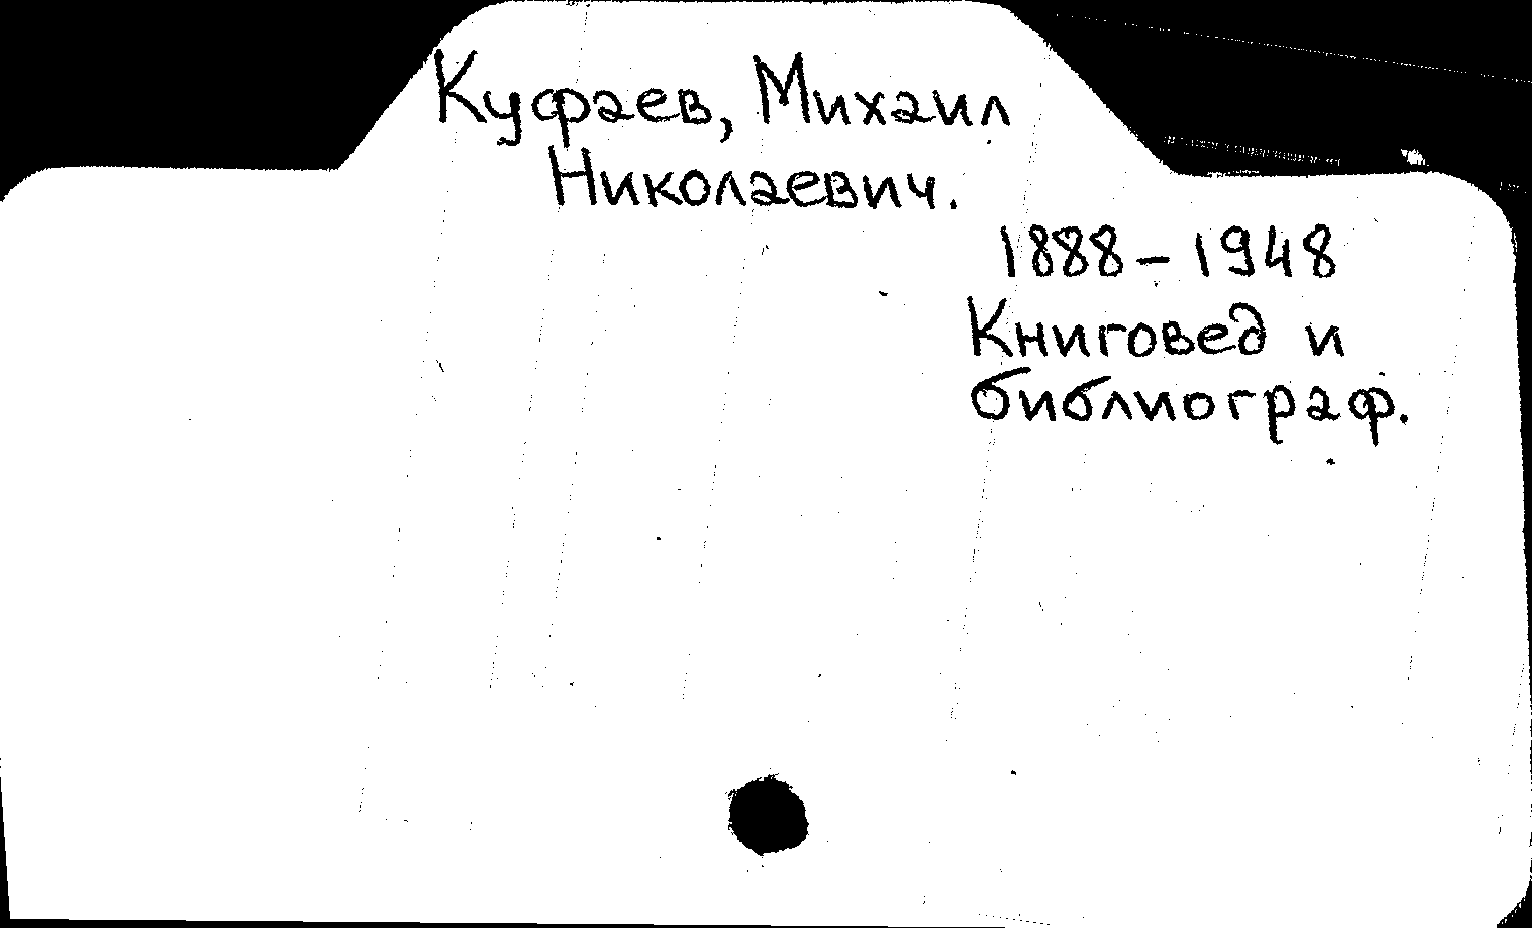 Куфаев, Михаил
Николаевич.
1888 – 1948
Книговед и
библиограф.